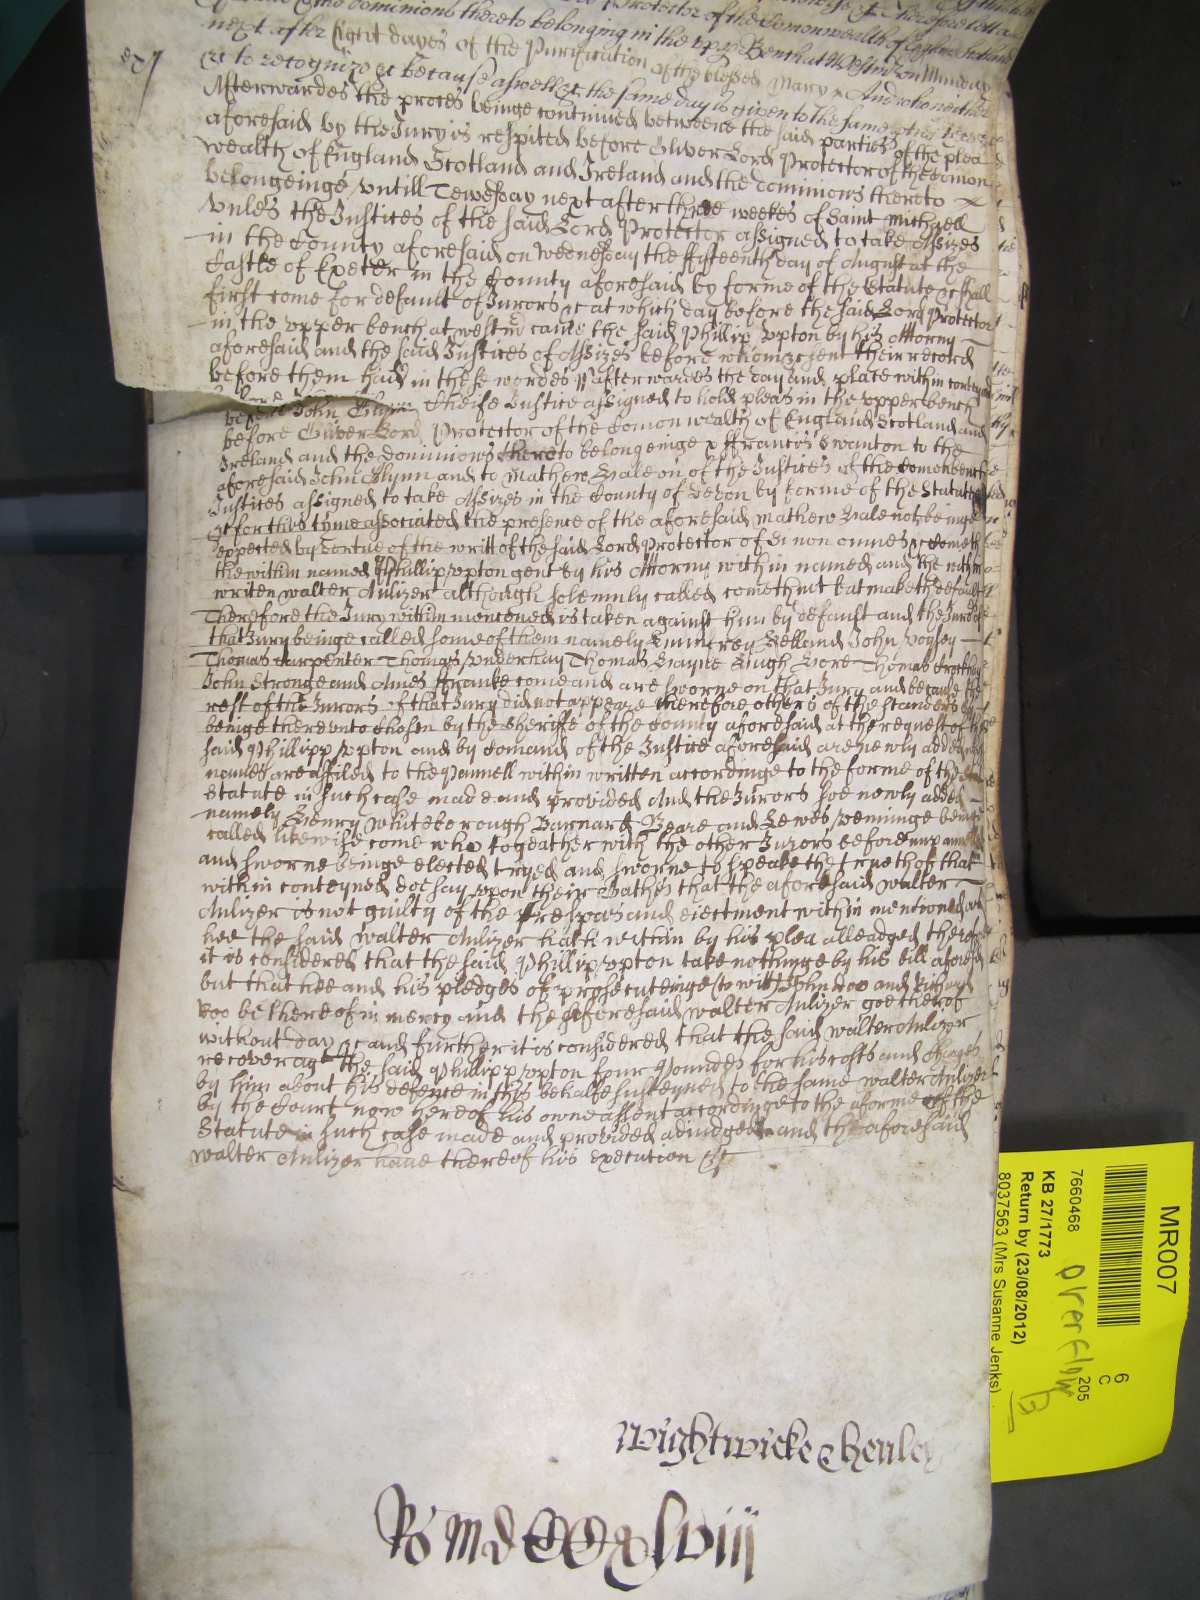 and the dominions thereto belonging in the upp Bench at Westm on Munday
next after Eight dayes of the Purification of the blessed Mary
& to recognize &c because aswell &c the same day is given to the same
Afterwardes the proces beinge continued betweene the said parties of the plea
aforesaid by the Jury is respited before Oliver Lord Protector of the Comon
wealth of England Scotland and Ireland and the dominions thereto
belongeinge untill Tewesday next after three weekes of Saint Michaell
unles the Justices of the said Lord Protector assigned to take Assizes
in the County aforesaid on wednesday the fifteenth day of August at the
Castle of Exeter in the County aforesaid by forme of the Statute &c shall
first come for default of Jurors &c at which day before the said Lord Protector
in the upper bench at westm came the said Phillip Upton by his Attorny
aforesaid and the said Justices of Assizes before whome &c sent their record
before them had in these wordes Afterwardes the day and place within
before John Glynn Cheife Justice assigned to hold pleas in the upper bench
before Oliver Lord Protector of the Comonwealth of England Scotland and
Ireland and the dominions thereto belongeinge & ffrancis Swanton to the
aforesaid John Glynn and to Mathew Hale on of the Justices of the Comonbench
Justices assigned to take Assizes in the County of Devon by forme of the Statute
&c for this tyme associated the presence of the aforesaid Mathew Hale not beinge
expected by vertue of the writt of the said Lord Protector of Si non omnes &c cometh
the within named Phillip Upton gent by his Attorny within named and the within
writen walter Aulizer although solemnly called cometh not but maketh default
Therefore the Jury within mencioned is taken against him by default and the Jurors
that Jury beinge called some of them namely Humfrey Helland John Voysey
Thomas Carpenter Thomas Underhay Thomas Hayne Hugh Gore Thomas
John Stronge and Ames ffranke come and are sworne on that Jury and because the
rest of the Jurors of that Jury did not appeare therefore others of the standers by
beinge thereunto chosen by the Sheriffe of the County aforesaid at the request of the
said Phillipp Upton and by comand of the Justice aforesaid are newly added
names are affiled to the Pannell within written accordinge to the forme of the
Statute in such case made and provided And the Jurors soe newly added
namely Henry Whiteborough Barnard Beare and Lewes Venninge beinge
called likewise come who togeather with the other Jurors before
and sworne beinge elected tryed and sworne to speake the trueth of that
within conteyned doe say upon their Oathes that the aforesaid walter
Aulizer is not guilty of the trespas and eiectment within mentioned as
hee the said Walter Aulizer hath within by his plea alleadged Therefore
it is considered that the said Phillip Upton take nothinge by his bill aforesaid
but that hee and his pledges of prosecuteinge (to wit) John Doo and Richard
Roo be thereof in mercy and the aforesaid walter Aulizer goe thereof
without day &c and further it is considered that the said walter Aulizer
recover ag the said Phillipp Upton four Poundes for his costs and charges
by him about his defence in this behalfe susteyned to the same walter Aulizer
by the Court now here of his owne assent accordinge to the aforme of the
Statute in such case made and provided adiudged and the aforesaid
walter Aulizer have thereof his execution &c
Wightwicke & henley
Ro MdCCxlviij
MR007
7660468
6
C
205
KB 27/1773
overflow
Return by (23/08/2012)
8037563 (Mrs Susanne Jenks)